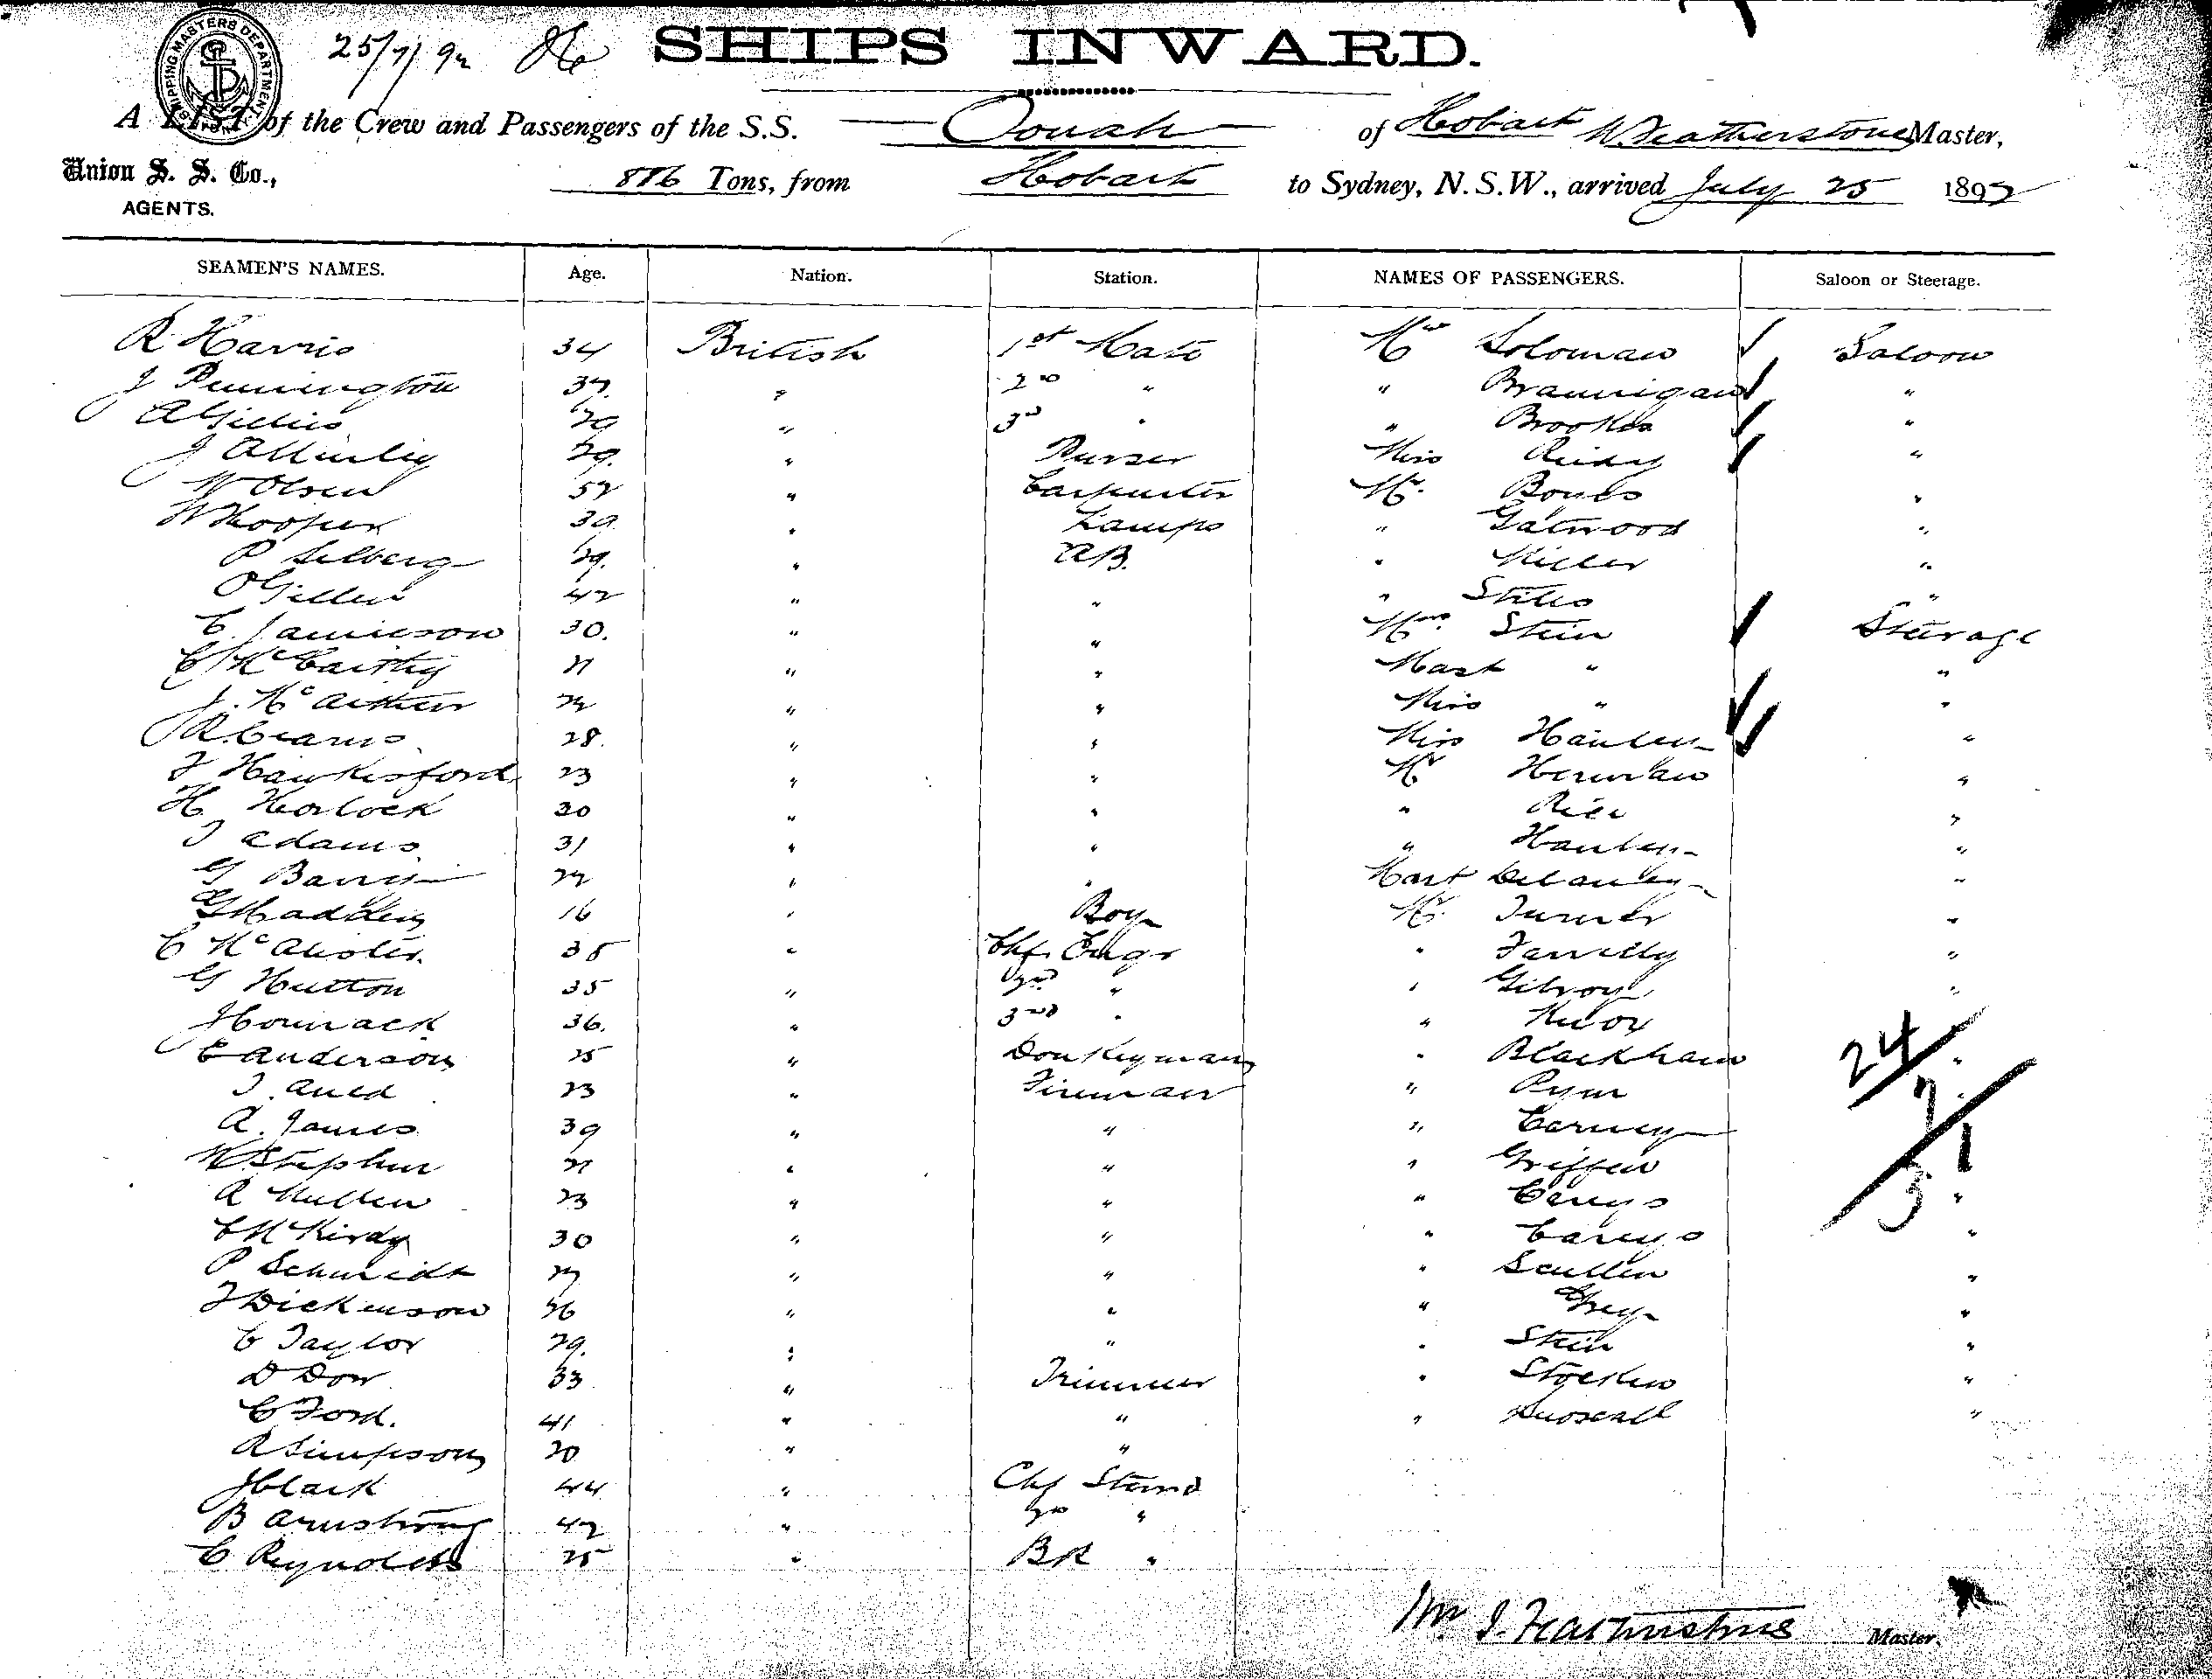 SHIPPING MASTERS DEPARTMENT
25/7/92
SHIPS INWARD.
A LIST of the Crew and Passengers of the S.S. Oonah of Hobart W. Featherstone Master,
Union S. S. Co., 886 Tons, from Hobart to Sydney, N.S.W., arrived July 25 1892
AGENTS.
SEAMEN'S NAMES. Age. Nation. Station. NAMES OF PASSENGERS. Saloon or Steerage.
R Harris 34 British 1st Mate Mr Soloman Saloon
J Pennington 37. " 2nd " " Brannigan "
A Gillies 29 " 3rd " " Brookes "
J 29. " Purser Miss "
W Olsen 52 " Carpenter Mr. Bones "
W Hooper 39. " Lamps " Gatwood "
P Selberg 29. " AB. " Miller "
O Gillen 42 " " " Stiles "
C. Jamieson 30. " " Mrs. Stein Steerage
C McCarthy 21 " " Mast " "
J. McArthur 22 " " Miss " "
R. Cearns 28. " " Miss Hanley "
J Hawkesford 23 " " Mr Herman "
H Horlock 30 " " " Rice "
J Adams 31 " " " Hanley "
G Barrett 22 " " Mast Delaney "
G Madden 16 " Boy Mr. Turner "
C McAlister. 35 " Chf. Engr " Farrelly "
G Hutton 35 " 2nd " " Gilroy "
J Hornack 36. " 3rd " " Knox "
C Anderson 25 " Donkeyman " Blackham " 24
J. Auld 23 " Fireman " Pym " 7
A. James 39 " " " Carney " 31
W Stephen 21 " " " Griffen
A Mullen 23 " " " "
C McKirdy 30 " " " "
P Schmidt 27 " " " Scullen "
J Dickenson 26 " " " Grey "
C Taylor 29. " " " Stein "
D Dow 33 " Trimmer " Stocken "
C Ford. 41 " " " "
A Simpson 20 " "
J Clark 44 " Chf Steward
B Armstrong 42 " 2nd "
C Reynolds 25 " BR "
Wm. J. Featherstone Master.